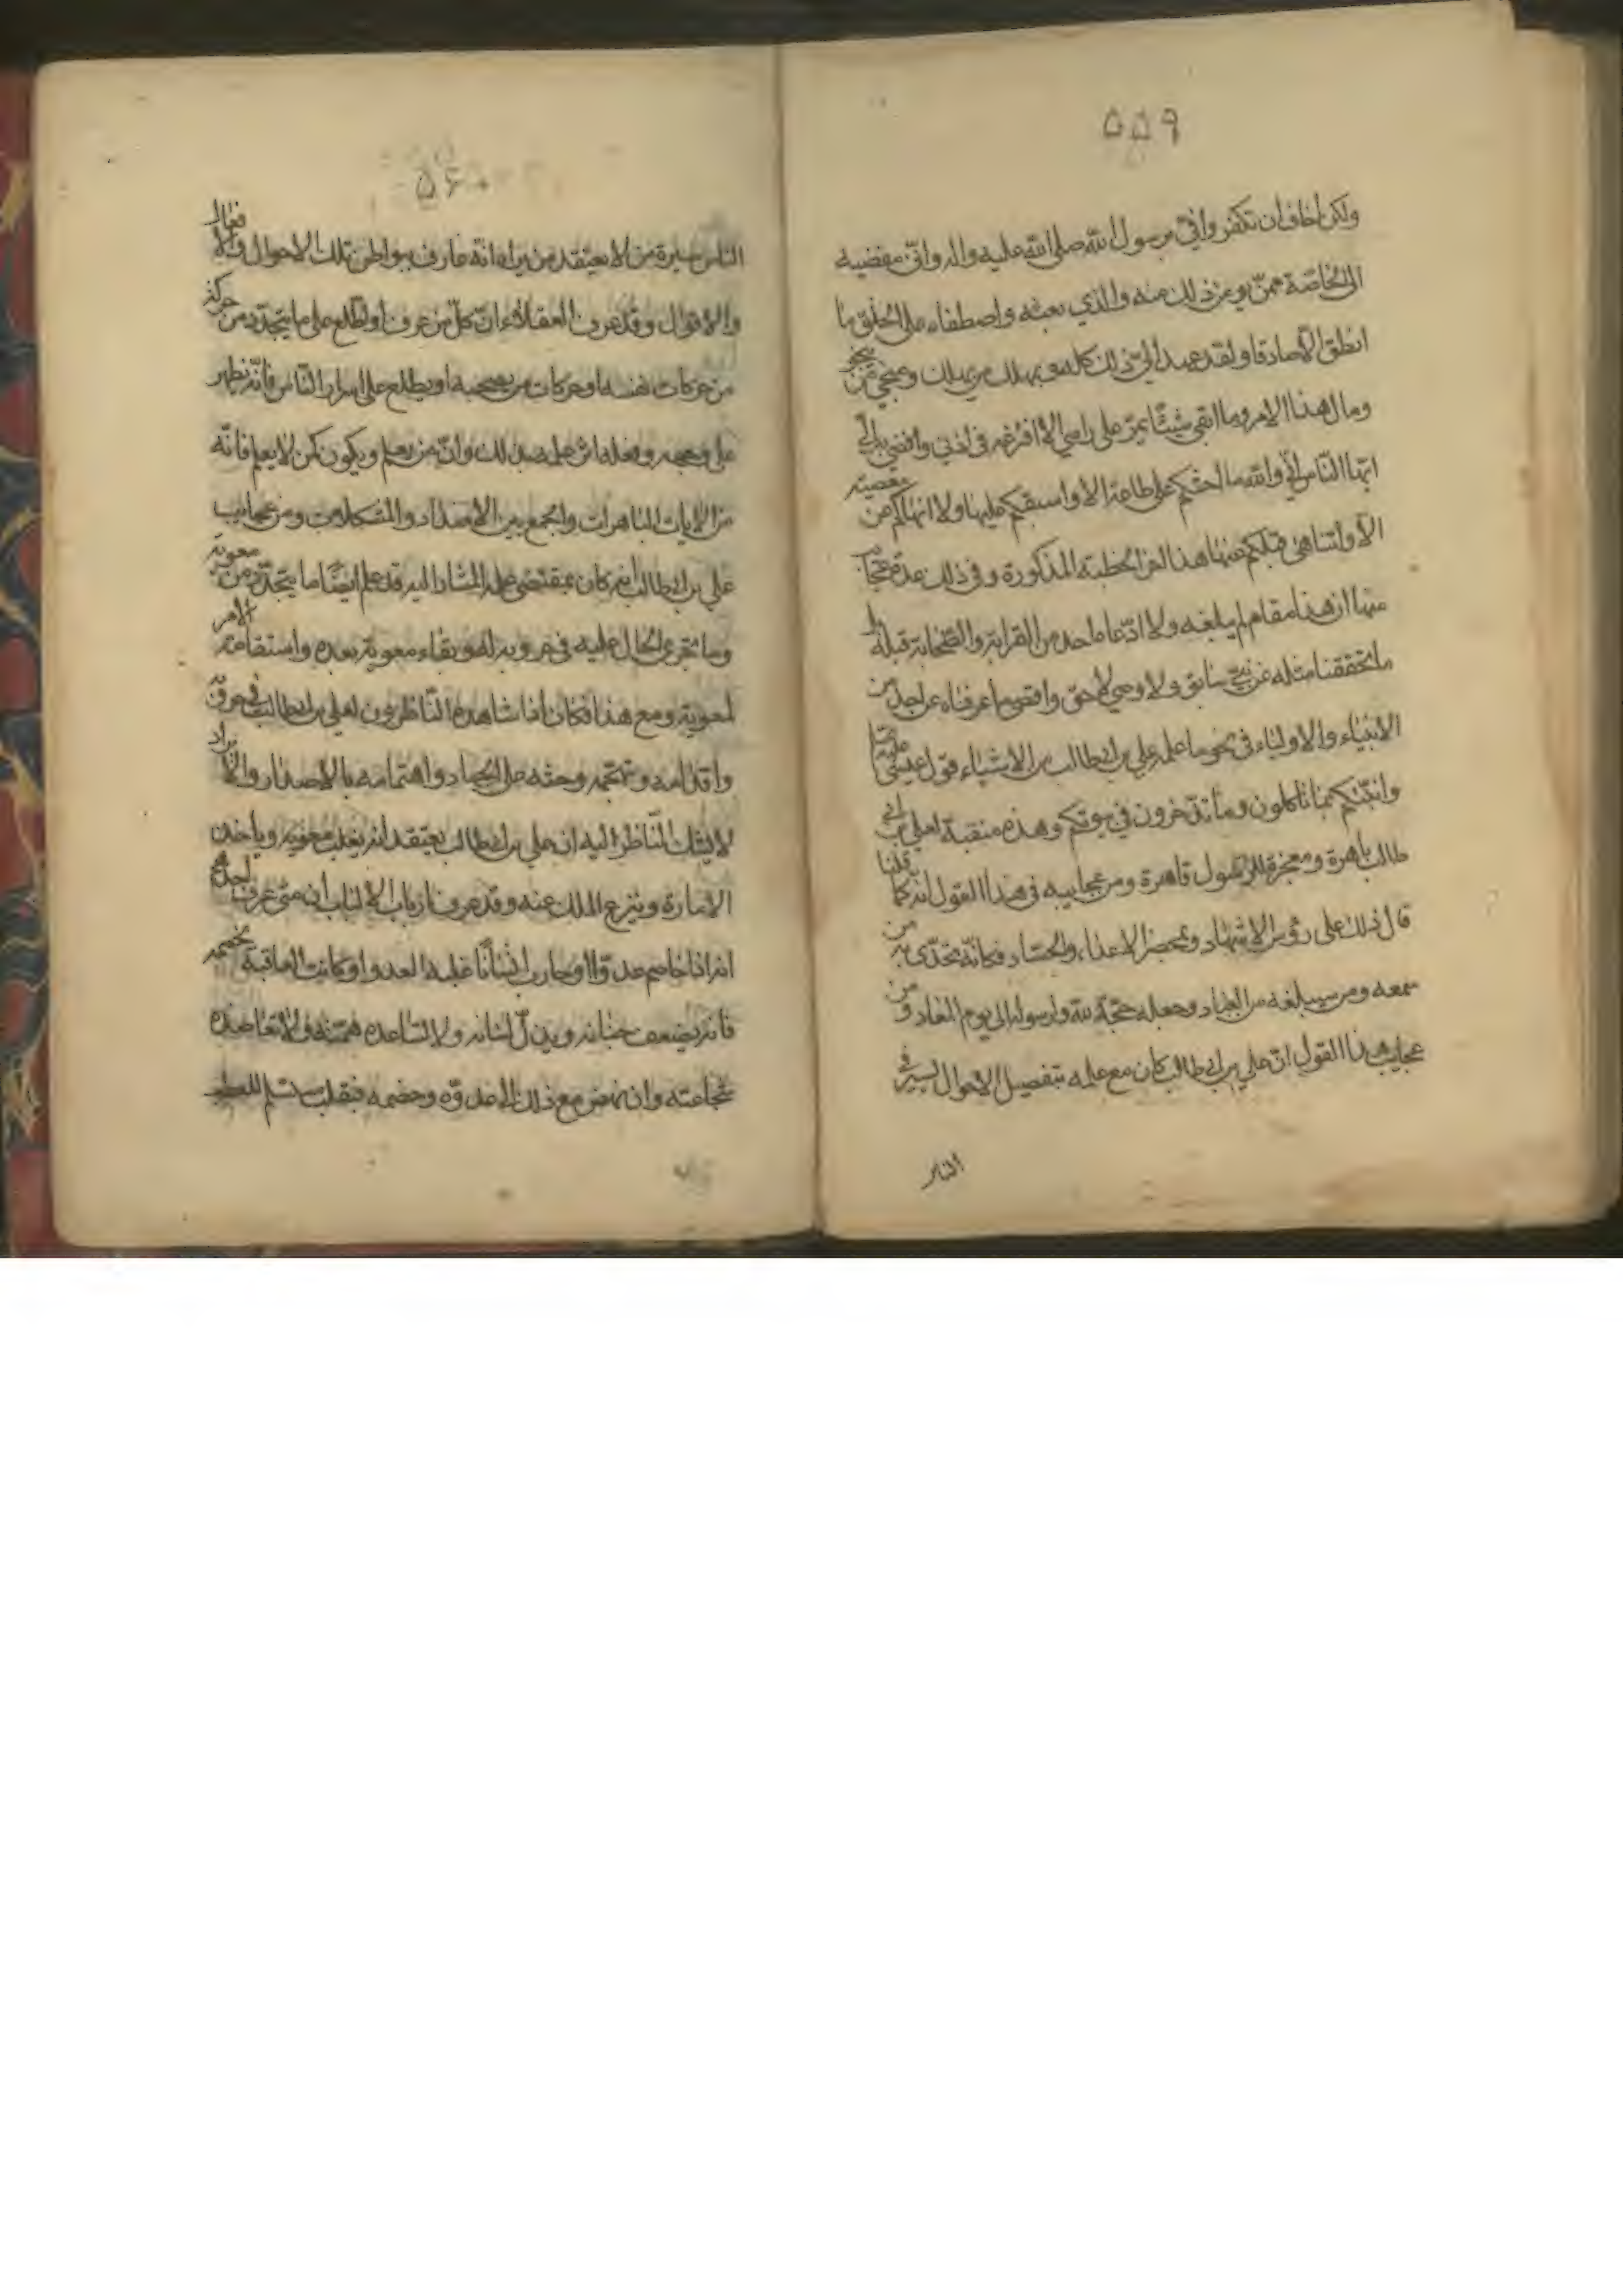 ۵۵۹
ولكن اخاف ان تكفروا في برسول الله صلى الله عليه واله واني مفضيه
الى الخاصة ممن يؤمن ذلك منه والذي بعثه واصطفاه على الخلق ما
انطق الا صادقا ولقد عهد الي ذلك كله وبمهلك من يهلك ومنجى من ينجو
ومال هذا الامر وما ابقى شيئا يمر على راسي الا افرغه في اذني وافضى به الي
ايها الناس اني والله ما احثكم على طاعة الا واسبقكم عليها ولا انهاكم عن معصية
الا واتناهى قبلكم عنها هذا لفظ الخطبة المذكورة وفي ذلك عدة عجايب
منها ان هذا مقام لم يبلغه ولا ادعاه احد من القرابة والصحابة قبله
ما تحققنا مثله عن نبي سابق ولا وصي لاحق واقصى ما عرفناه عن احد من
الانبياء والاولياء في نحو ما علمه علي بن ابيطالب من الاشياء قول عيسى عليه السلام
وانبئكم بما تاكلون وما تدخرون في بيوتكم وهذه منقبة لعلي بن ابي
طالب باهرة ومعجزة للرسول قاهرة ومن عجايبه في هذا القول انه كما قلنا
قال ذلك على رؤس الاشهاد وبمحضر الاعداء والحساد فكانه تحدى به من
سمعه ومن سيبلغه من العباد وجعله حجة لله ولرسوله الى يوم المعاد ومن
عجايب هذا القول ان علي بن ابيطالب كان مع علمه بتفصيل الاحوال يسير في
الناس
۵۶۰
الناس سيرة من لا يعتقد من يراه انه عارف ببواطن تلك الاحوال والافعال
والاقوال وقد عرف العقلاء ان كل من عرف او اطلع على ما يتجدد من حركة
من حركات نفسه او حركات من يصحبه او يطلع على اسرار الناس فانه يظهر
على وجهه وفعله اثر علمه بذلك وان من يعلم ويكون كمن لا يعلم فانه
من الايات الباهرات والجمع بين الاضداد والمشكلات ومن عجايب
علي بن ابيطالب انه كان بمقتضى علمه المشار اليه قد علم ايضا ما يتجدد من معوية
وما تجري الحال عليه في حروبه له وبقاء معوية بعده واستقامة الامر
لمعوية ومع هذا فكان اذا شاهده الناظرون لعلي بن ابيطالب في حروبه
واقدامه وتهجمه وحثه على الجهاد واهتمامه بالاصدار والايراد
لا يشك الناظر اليه ان علي بن ابيطالب يعتقد انه يغلب معوية وياخذ
الامارة وينزع الملك عنه وقد عرف ارباب الالباب ان متى عرف احدهم
انه اذا خاصم عدوا او حارب انسانا غلبه العدو او كانت العاقبة لخصمه
فانه يضعف جنانه ويذل لسانه ولا تساعده همته ولا تعاضده
شجاعته وان نهض مع ذلك الى عدوه وخصمه فبقلب مستسلم